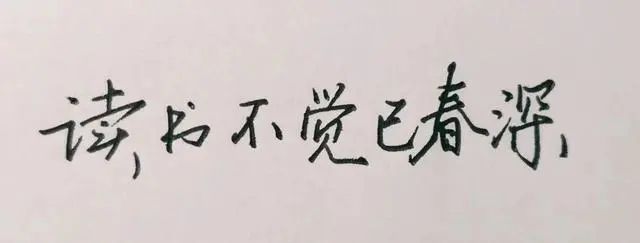 读书不觉已春深